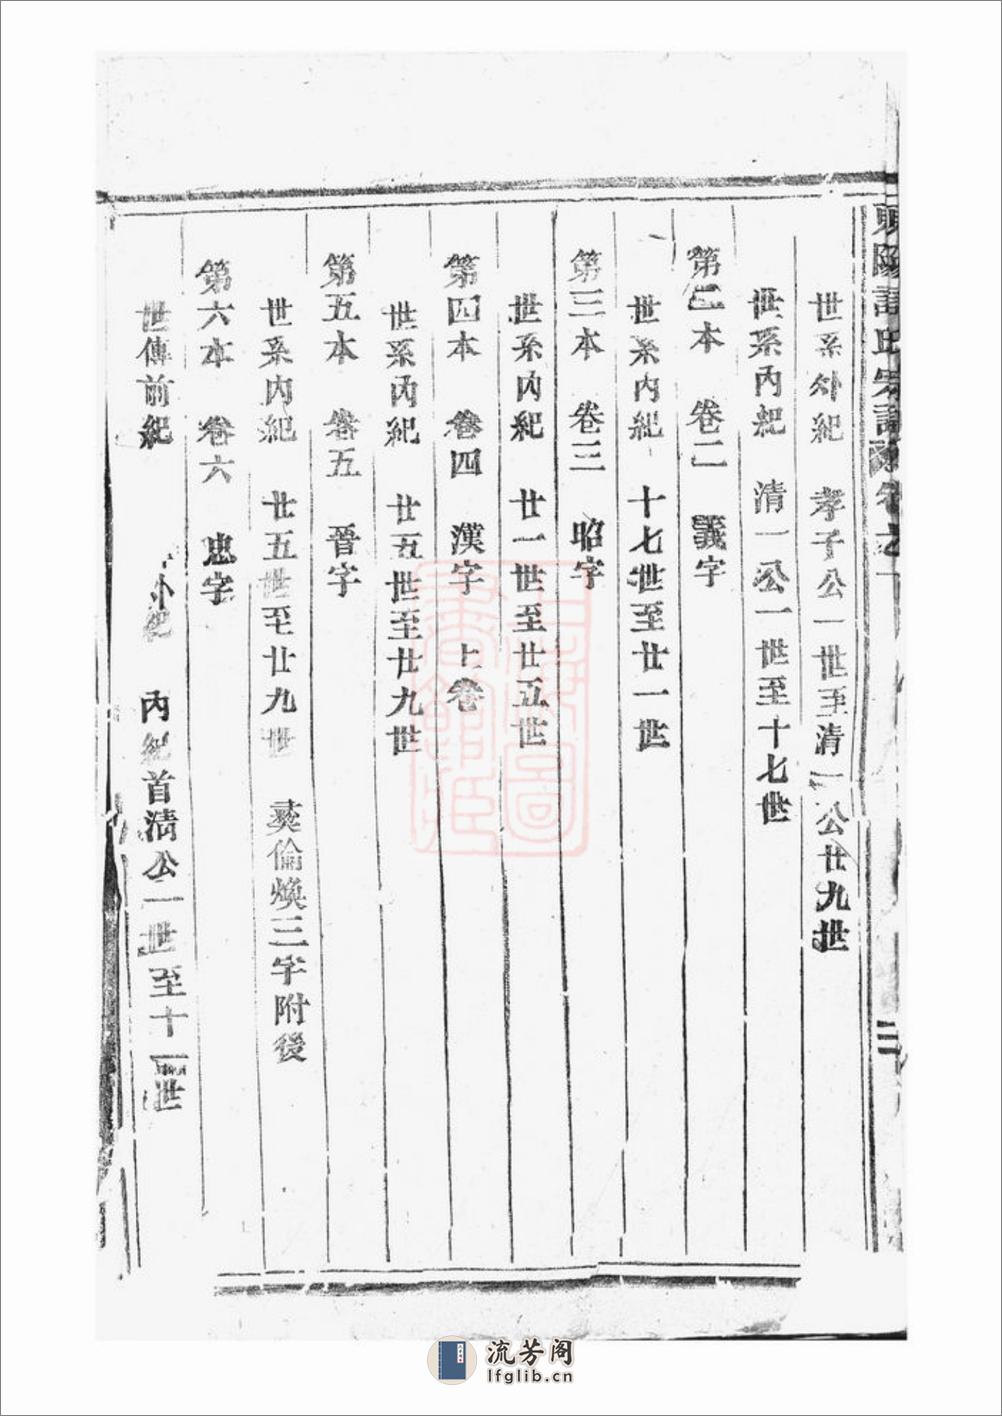 世系外紀 孝子公一世至清一公廿九世
世系內紀 清一公一世至十七世
第二本 卷二 義字
世系內紀 十七世至廿一世
第三本 卷三 昭字
世系內紀 廿一世至廿五世
第四本 卷四 漢字 上卷
世系內紀 廿五世至廿九世
第五本 卷五 晉字
世系內紀 廿五世至廿九世 爕倫煥三字附後
第六本 卷六 忠字
世傳前紀 外紀 內紀首淸公一世至十世
三
流芳阁
lfglib.cn